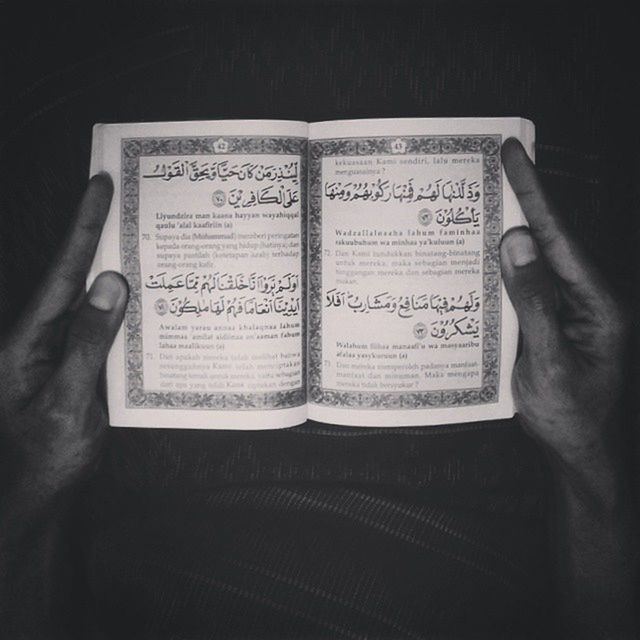 42
لِيُنْذِرَ مَنْ كَانَ حَيًّا وَيَحِقَّ الْقَوْلُ
عَلَى الْكَافِرِيْنَ ﴿٧٠﴾
Liyundzira man kaana hayyan wayahiqqal
qaulu 'alal kaafiriin (a)
70. Supaya dia (Muhammad) memberi peringatan
kepada orang-orang yang hidup (hatinya) dan
supaya pastilah (ketetapan azab) terhadap
orang-orang kafir.
اَوَلَمْ يَرَوْا اَنَّا خَلَقْنَا لَهُمْ مِمَّا عَمِلَتْ
اَيْدِيْنَا اَنْعَامًا فَهُمْ لَهَا مَالِكُوْنَ ﴿٧١﴾
Awalam yarau annaa khalaqnaa lahum
mimmaa 'amilat aidiinaa an'aaman fahum
lahaa maalikuun (a)
71. Dan apakah mereka tidak melihat bahwa
sesungguhnya Kami telah menciptakan
binatang ternak untuk mereka, yaitu sebagian
dari apa yang telah Kami ciptakan dengan
43
kekuasaan Kami sendiri, lalu mereka
menguasainya ?
وَذَلَّلْنَاهَا لَهُمْ فَمِنْهَا رَكُوْبُهُمْ وَمِنْهَا
يَأْكُلُوْنَ ﴿٧٢﴾
Wadzallalnaaha lahum faminhaa
rakuubuhum wa minhaa ya'kuluun (a)
72. Dan Kami tundukkan binatang-binatang
untuk mereka, maka sebagian menjadi
tunggangan mereka dan sebagian mereka
makan.
وَلَهُمْ فِيْهَا مَنَافِعُ وَمَشَارِبُ اَفَلَا
يَشْكُرُوْنَ ﴿٧٣﴾
Walahum fiihaa manaafi'u wa masyaaribu
afalaa yasykuruun (a)
73. Dan mereka memperoleh padanya manfaat-
manfaat dan minuman. Maka mengapa
mereka tidak bersyukur ?